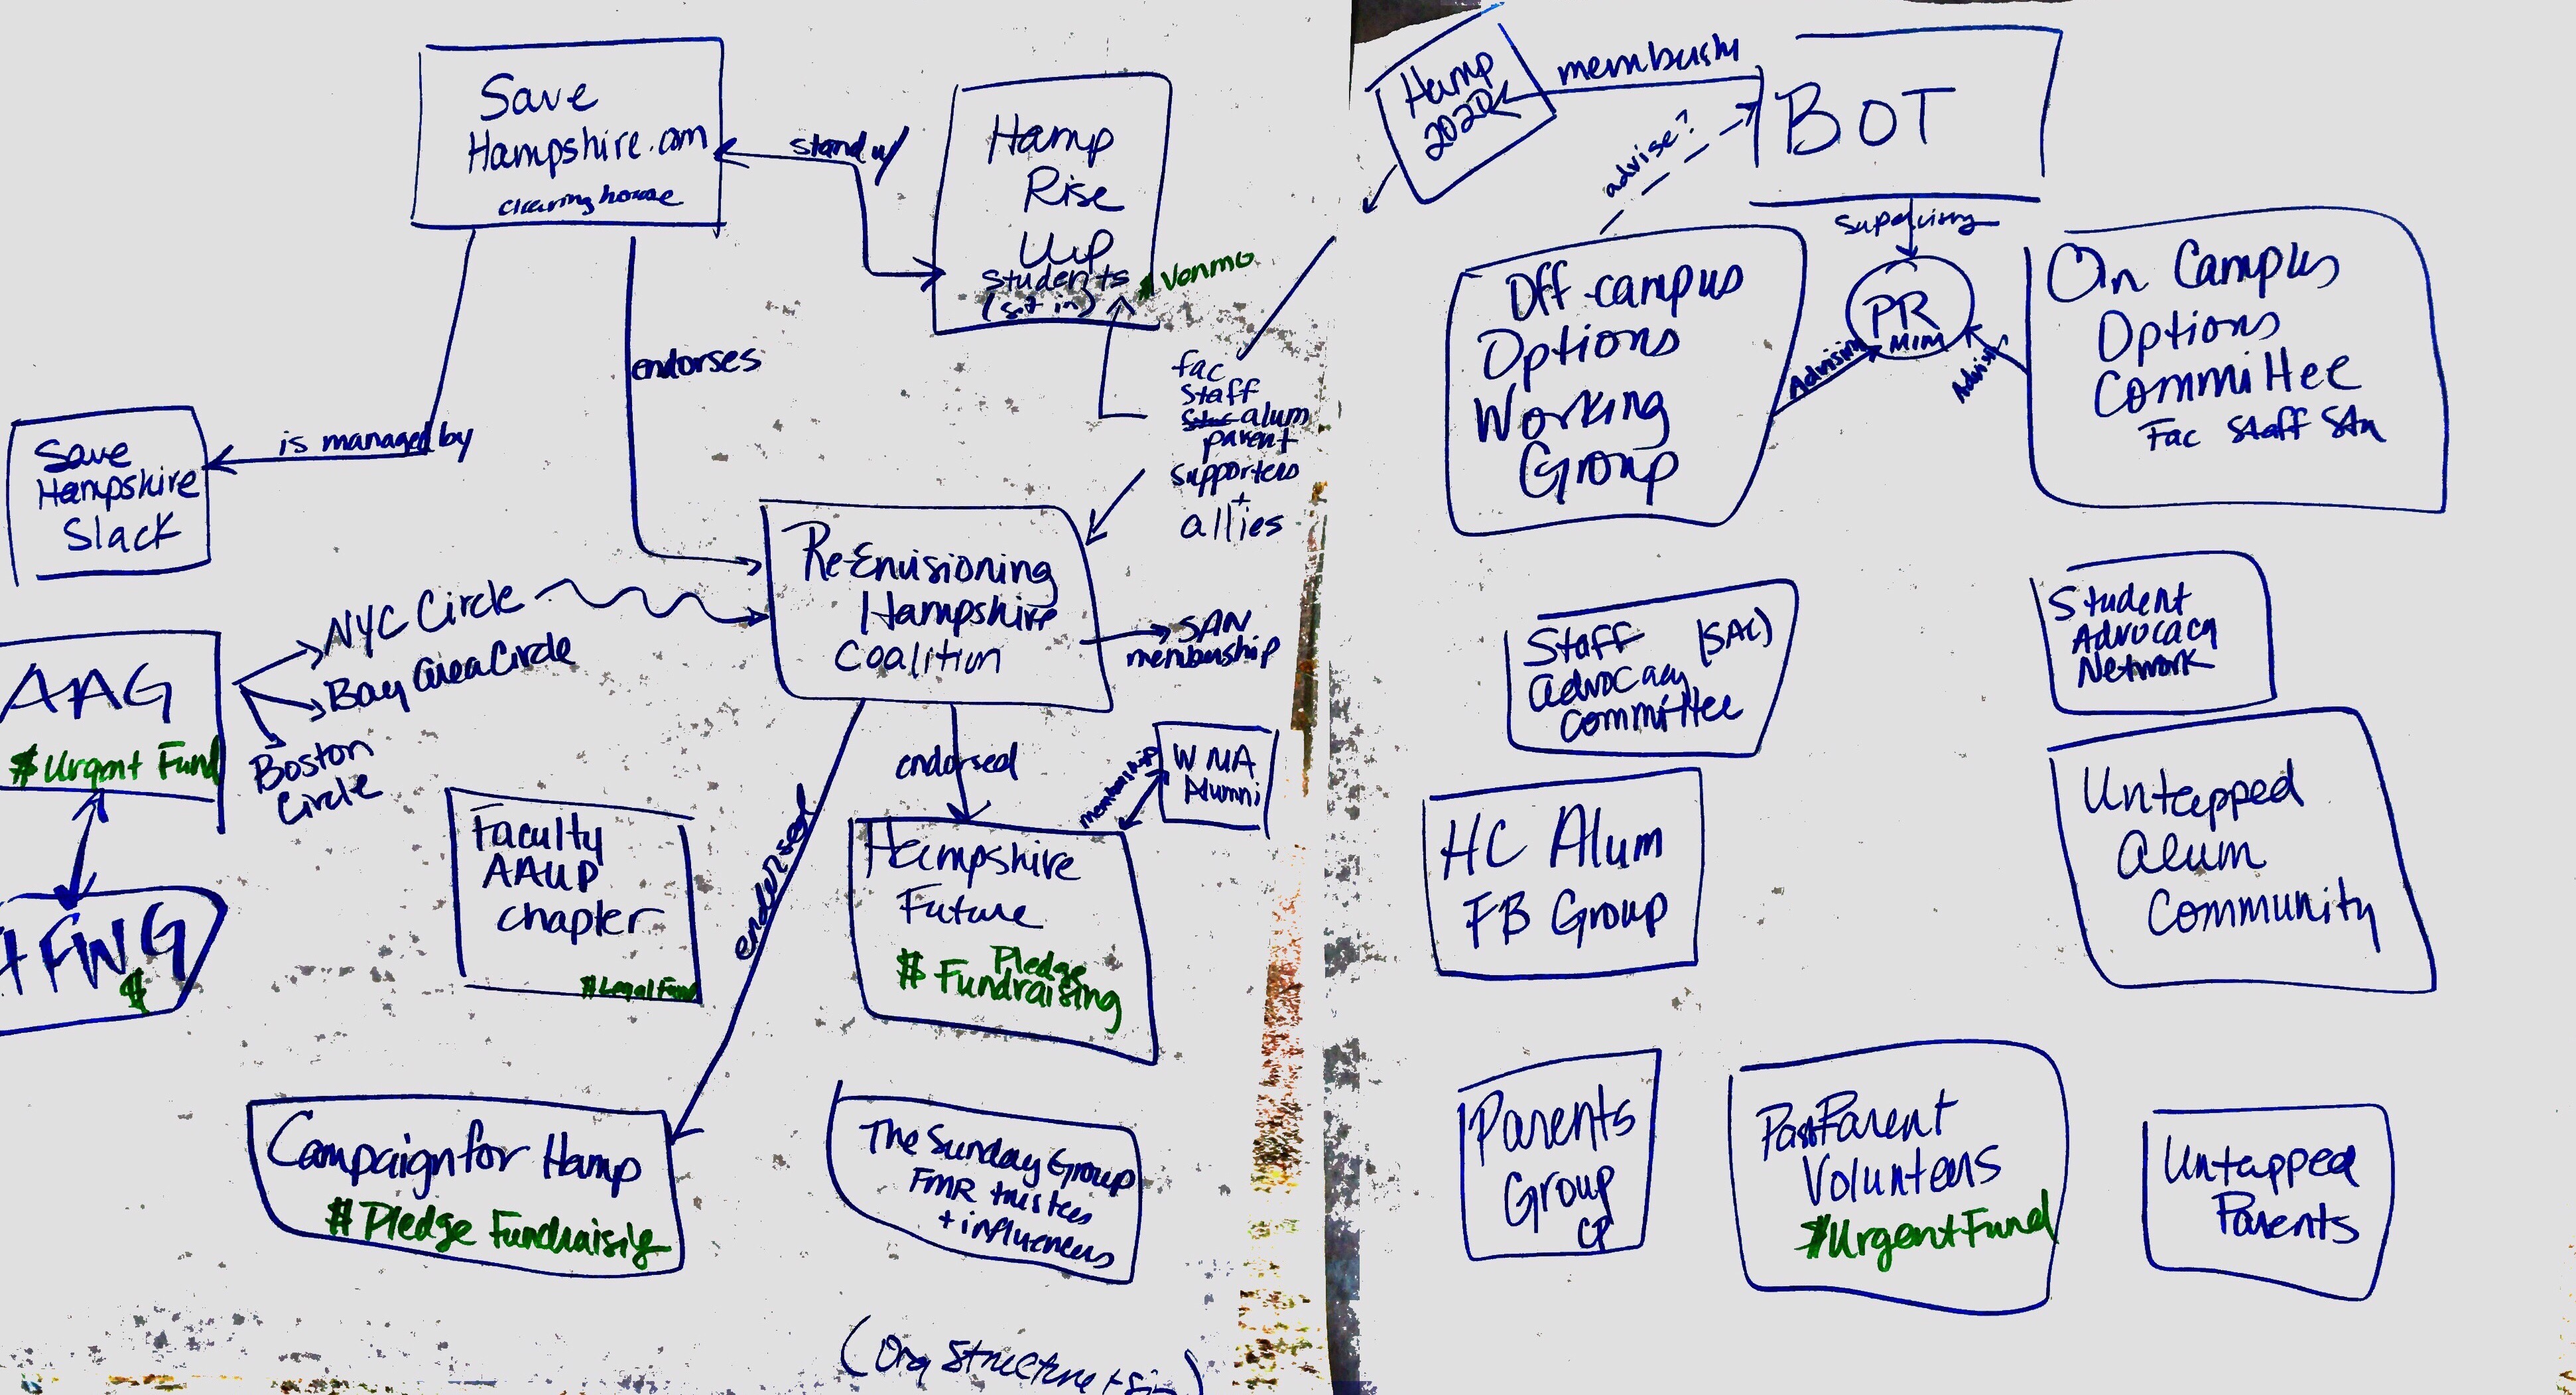 Save
Hampshire.com
clearing house
stand w/
Hamp
Rise
Up
Students
(sit in)
$ Venmo
is managed by
endorses
Save
Hampshire
Slack
fac
Staff
alum
parent
supporters
+
allies
Re-Envisioning
Hampshire
Coalition
SAN
membership
NYC Circle
Bay Area Circle
Boston
Circle
AAG
$ Urgent Fund
FWG
$
Faculty
AAUP
chapter
$ Legal Fund
endorsed
endorsed
membership
WMA
Alumni
Hampshire
Future
$ Pledge
Fundraising
Campaign for Hamp
$ Pledge Fundraisig
The Sunday Group
FMR trustees
+ influencers
(Org Structure +
Hamp
2020
membership
BOT
advise?
Supervising
PR
MIM
Advising
Advising
Off-campus
Options
Working
Group
On Campus
Options
Committee
Fac Staff Stu
Staff (SAC)
Advocacy
Committee
Student
Advocacy
Network
HC Alum
FB Group
Untapped
Alum
Community
Parents
Group
CP
Past Parent
Volunteers
$ Urgent Fund
Untapped
Parents